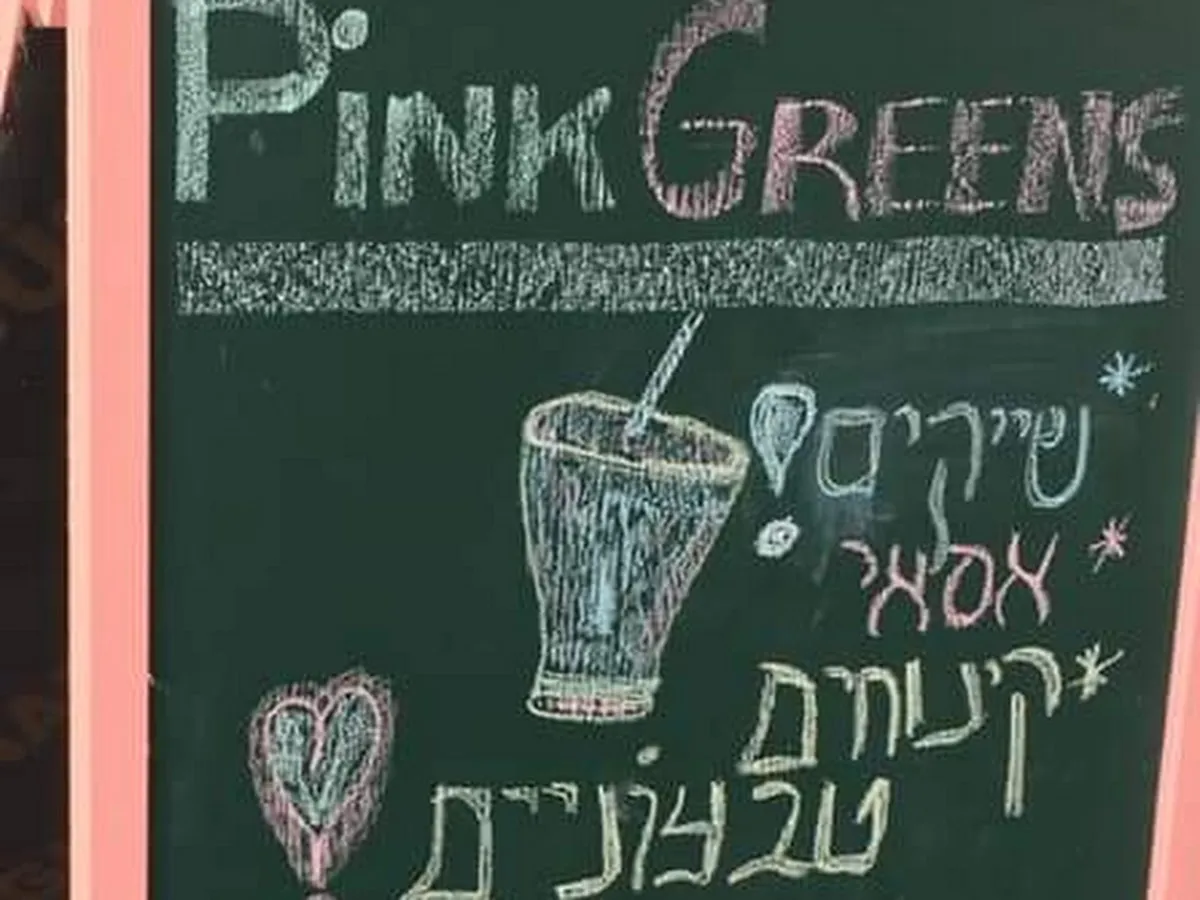 PiNK GREENS
* שייקים!
* אסאי
* קינוחים
טבעוניים